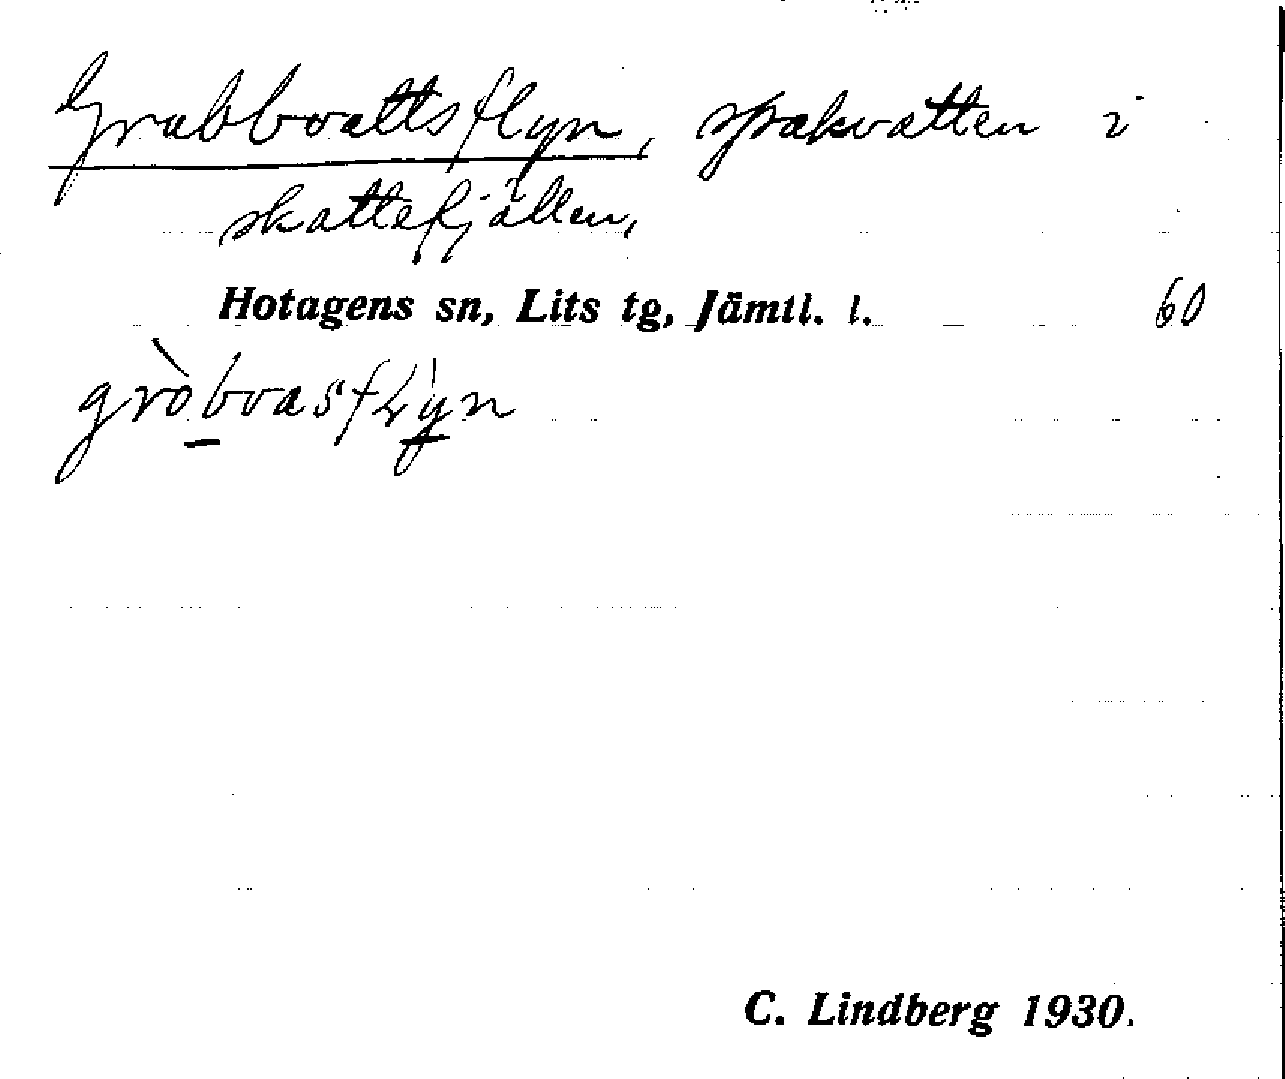 Grubbvattsflyn, spakvatten i
skattefjällen,
Hotagens sn, Lits tg, Jämtl. l. 60
C. Lindberg 1930.